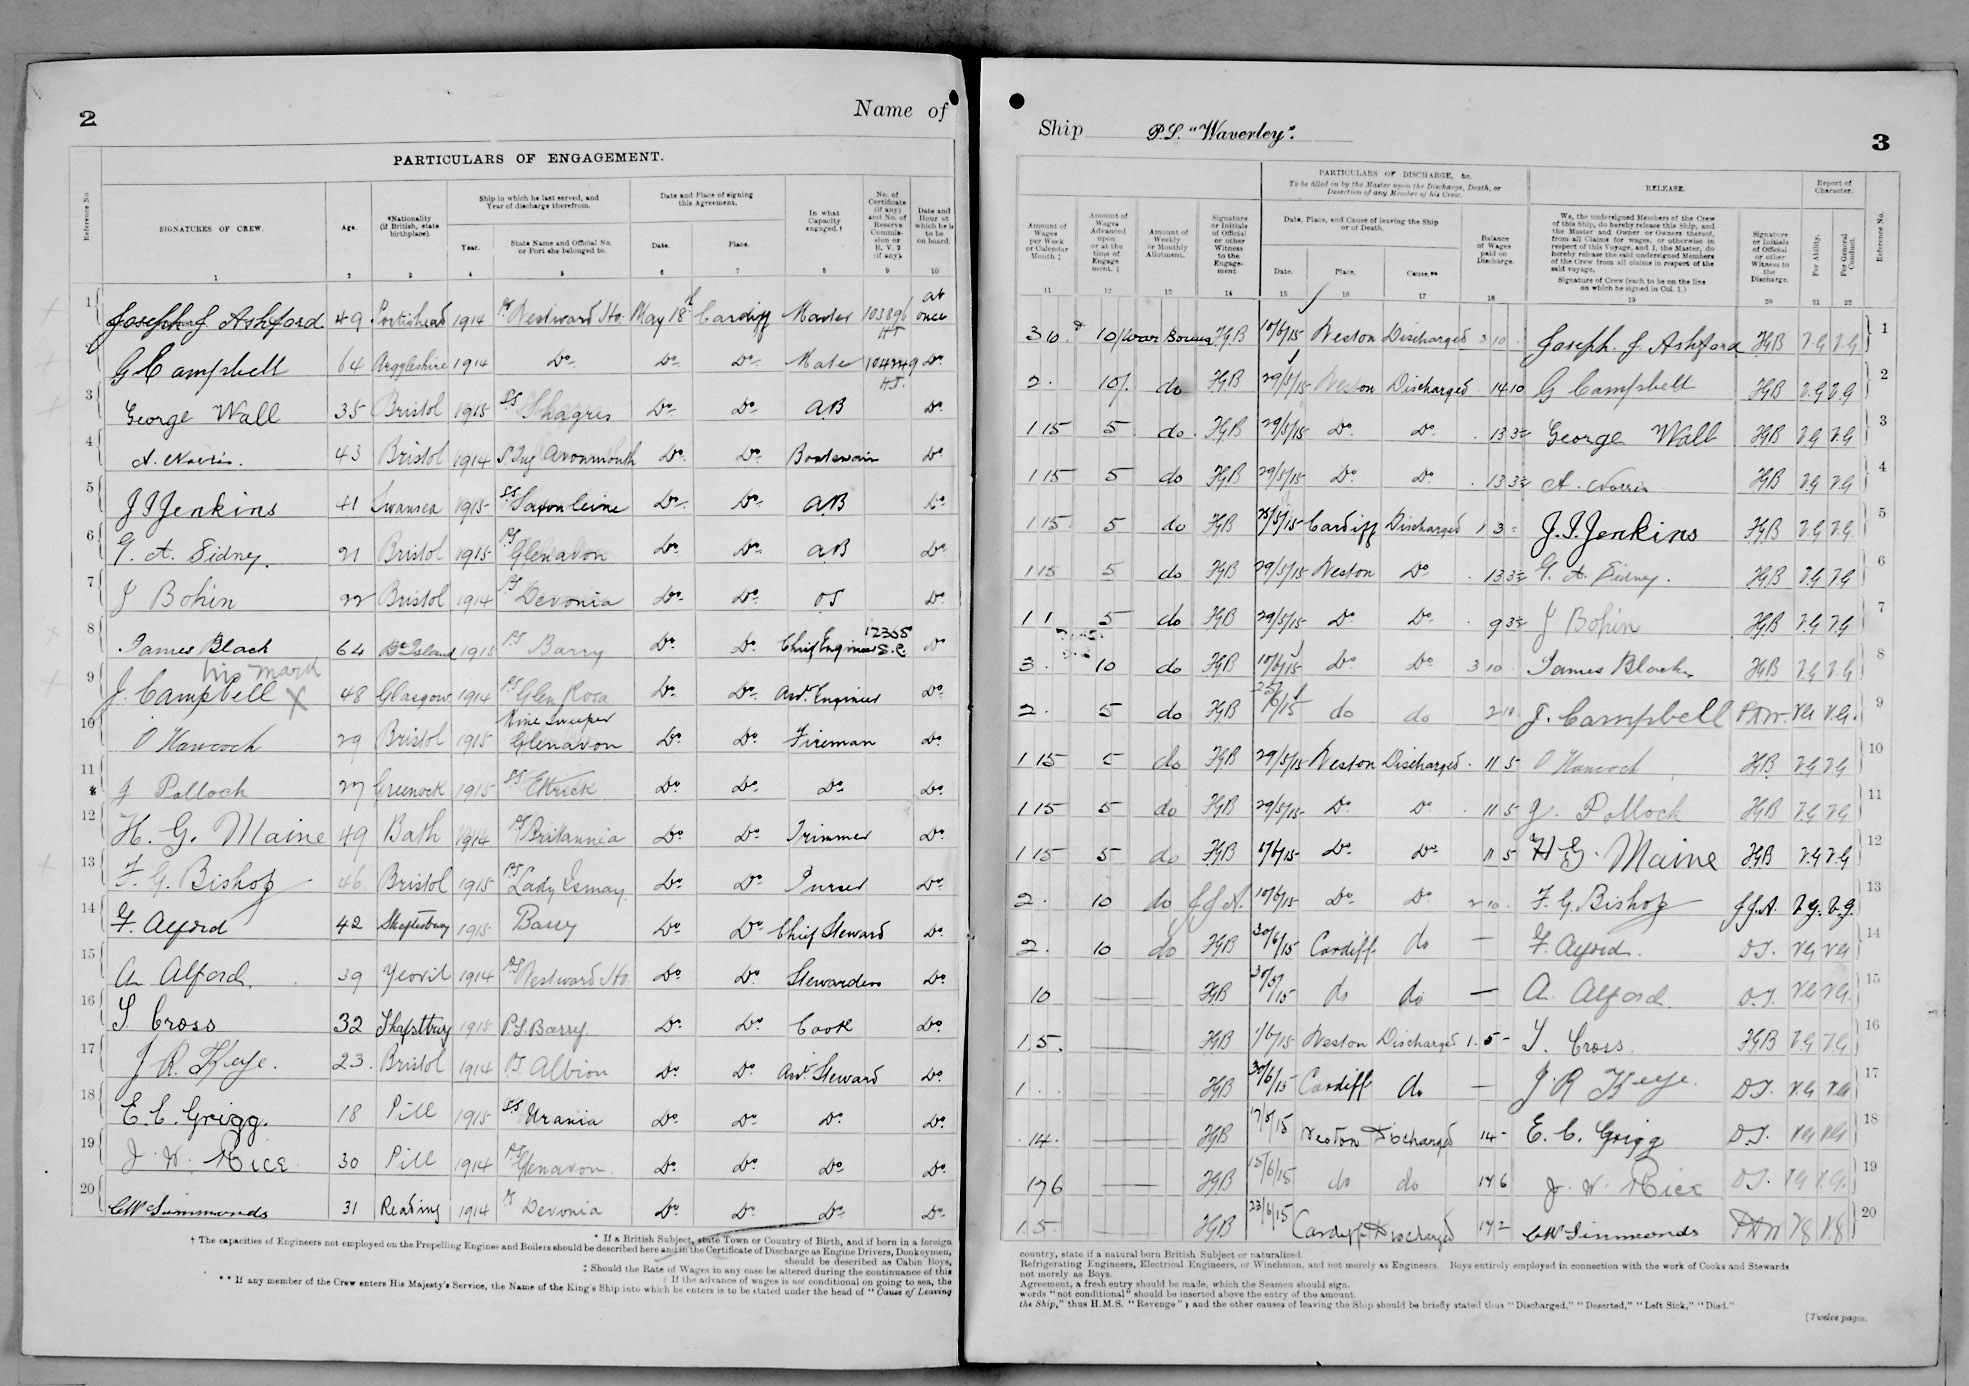 2
Name of
PARTICULARS OF ENGAGEMENT.
Reference No
SIGNATURES OF CREW.
Age.
*Nationality (if British, state birthplace).
Ship in which he last served, and Year of discharge therefrom.
Year.
State Name and Official No. or Port she belonged to.
Date and Place of signing this Agreement.
Date.
Place.
In what Capacity engaged.†
No. of Certificate (if any) and No. of Reserve Commission or R. V. 2 (if any).
Date and Hour at which he is to be on board.
1 2 3 4 5 6 7 8 9 10
1 Joseph J Ashford 49 Portishead 1914 PS Westward Ho. May 18th Cardiff Master 103896 HT at once
2 G Campbell 64 Argyleshire 1914 Do Do Do Mate 104249 HT. Do
3 George Wall 35 Bristol 1915 SS Shagres Do Do AB Do
4 A. Norris. 43 Bristol 1914 S Tug Avonmouth Do Do Boatswain Do
5 J I Jenkins 41 Swansea 1915 SS Saxon Do Do AB Do
6 G. A. Sidney. 21 Bristol 1915 PS Glenavon Do Do AB Do
7 J Bohin 22 Bristol 1914 PS Devonia Do Do OS Do
8 James Black 64 1915 PS Barry Do Do Chief Engineer 12358 Do
his mark
9 J. Campbell X 48 Glasgow 1914 PS Glen Rosa Do Do 2nd Engineer Do
10 O Hancock 29 Bristol 1915 Mine Sweeper Glenavon Do Do Fireman Do
11 J Pollock 27 Greenock 1915 SS Ettrick Do Do Do Do
12 H. G. Maine 49 Bath 1914 PS Britannia Do Do Trimmer Do
13 F. G. Bishop 46 Bristol 1915 PS Lady Ismay. Do Do Purser Do
14 F. Alford 42 Shaftesbury 1915 Barry Do Do Chief Steward Do
15 A Alford. 39 Yeovil 1914 PS Westward Ho. Do Do Stewardess Do
16 S. Cross 32 1915 P.S. Barry. Do Do Cook Do
17 J R. Keye. 23. Bristol 1914 PS Albion Do Do Asst. Steward Do
18 E. C. Grigg. 18 Pill 1915 SS Urania Do Do Do Do
19 J. W. Rice 30 Pill 1914 PS Glenavon. Do Do Do Do
20 C W Simmonds 31 Reading 1914 PS Devonia Do Do Do Do
* If a British Subject, state Town or Country of Birth, and if born in a foreign
† The capacities of Engineers not employed on the Propelling Engines and Boilers should be described here and in the Certificate of Discharge as Engine Drivers, Donkeymen,
should be described as Cabin Boys,
‡ Should the Rate of Wages in any case be altered during the continuance of this
‖ If the advance of wages is not conditional on going to sea, the
** If any member of the Crew enters His Majesty's Service, the Name of the King's Ship into which he enters is to be stated under the head of "Cause of Leaving
Ship P.S. "Waverley".
3
PARTICULARS OF DISCHARGE, &c.
To be filled in by the Master upon the Discharge, Death, or Desertion of any Member of his Crew.
RELEASE.
Report of Character.
Amount of Wages per Week or Calendar Month ‡
Amount of Wages Advanced upon or at the time of Engagement. ‖
Amount of Weekly or Monthly Allotment.
Signature or Initials of Official or other Witness to the Engagement
Date, Place, and Cause of leaving the Ship or of Death.
Date.
Place.
Cause.**
Balance of Wages paid on Discharge.
We, the undersigned Members of the Crew of this Ship, do hereby release this Ship, and the Master and Owner or Owners thereof, from all Claims for wages, or otherwise in respect of this Voyage, and I, the Master, do hereby release the said undersigned Members of the Crew from all claims in respect of the said voyage.
Signature of Crew (each to be on the line on which he signed in Col. 1.)
Signature or Initials of Official or other Witness to the Discharge.
For Ability.
For General Conduct.
Reference No.
11 12 13 14 15 16 17 18 19 20 21 22
3 10 10/ War Bonus FGB 10/6/15 Weston Discharged 3 10 Joseph. J. Ashford FGB V.G V.G 1
2. 10/. do FGB 29/5/15 Weston Discharged 14 10 G Campbell FGB V.G V.G 2
1 15 5 do. FGB 29/5/15 Do. Do. 13 3½ George Wall FGB V.G V.G 3
1 15 5 do FGB 29/5/15 Do Do. 13 3½ A. Norris FGB V.G V.G 4
1 15 5 do FGB 25/5/15 Cardiff Discharged 1 3 J. I. Jenkins FGB V.G V.G. 5
1 15 5 do FGB 29/5/15 Weston Do 13 3½ G. A. Sidney. FGB V.G V.G 6
1 1 5 do FGB 29/5/15 Do Do 9 3½ J Bohin FGB V.G V.G 7
3. 10 do FGB 10/6/15 Do Do 3 10 James Black FGB V.G V.G 8
2. 5 do FGB 25/6/15 do do 2 10 J. Campbell VG V.G. 9
1 15 5 do FGB 29/5/15 Weston Discharged 11 5 O Hancock FGB V.G V.G 10
1 15 5 do FGB 29/5/15 Do Do 11 5 J. Pollock FGB V.G V.G 11
1 15 5 do FGB Do Do 11 5 H G. Maine FGB V.G V.G 12
2. 10 do J J A. 10/6/15 Do Do 2 10 F. G. Bishop J.J.A. V.G. V.G. 13
2. 10 do FGB 30/6/15 Cardiff do — F. Alford. D.T. VG VG 14
10 — FGB do do — A. Alford. D.T. VG VG. 15
1 5. — FGB 1/6/15 Weston Discharged 1 5 - S. Cross. FGB V.G V.G 16
1 — FGB 30/6/15 Cardiff do — J. R Keye. D.T. VG VG 17
14. — FGB Weston Discharged 14 - E. C. Grigg D.T. VG VG 18
17 6 — FGB 15/6/15 do do 17 6 J. W. Rice D.T. VG V.G. 19
1 5. — FGB 23/6/15 Cardiff Discharged C W Simmonds VG VG 20
country, state if a natural born British Subject or naturalized.
Refrigerating Engineers, Electrical Engineers, or Winchmen, and not merely as Engineers. Boys entirely employed in connection with the work of Cooks and Stewards
not merely as Boys.
Agreement, a fresh entry should be made, which the Seamen should sign.
words "not conditional" should be inserted above the entry of the amount.
the Ship," thus H.M.S. "Revenge"; and the other causes of leaving the Ship should be briefly stated thus "Discharged," "Deserted," "Left Sick," "Died."
[Twelve pages.